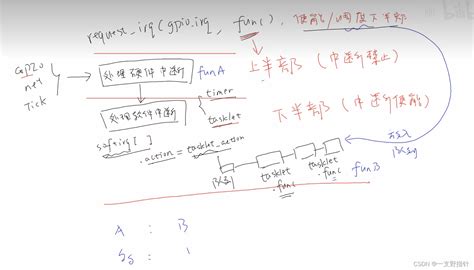 request_irq(gpio.irq, func), 使能/调度下半部
GPIO
net
Tick
处理硬件中断
funA
上半部(中断禁止)
处理软件中断
timer
tasklet
下半部(中断使能)
softirq[]
.action = tasklet_action
放入
队列
队列
tasklet
.func
tasklet
.func
funB
A : B
CSDN @一文野指针